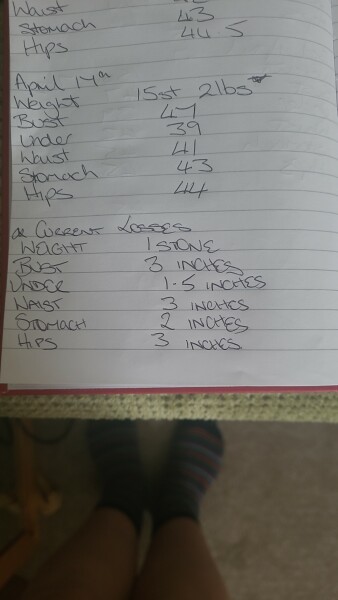 Waist
Stomach 43
Hips 44.5
April 14th
Weight 15st 2lbs
Bust 47
Under 39
Waist 41
Stomach 43
Hips 44
Current Losses
WEIGHT 1 STONE
BUST 3 INCHES
UNDER 1.5 INCHES
WAIST 3 INCHES
STOMACH 2 INCHES
HIPS 3 INCHES